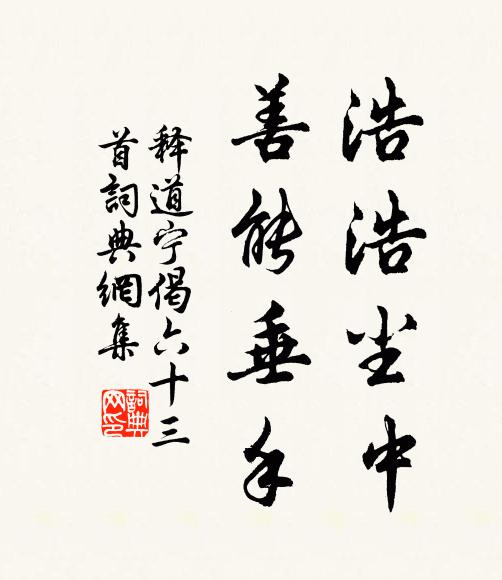 浩浩尘中
善能垂手
释道宁偈六十三
首詞典網集
詞典网印